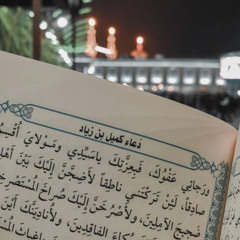 دعاء كميل بن زياد
ورجائي عَفْوُكَ، فَبِعِزَّتِكَ ياسَيِّدِي وَمَوْلايَ أُقْسِمُ
صادِقاً، لَئِنْ تَرَكْتَنِي ناطِقاً لَأَضِجَّنَّ إِلَيْكَ بَيْنَ أَهْلِ
ضَجِيجَ الآمِلِينَ، وَلَأَصْرُخَنَّ إِلَيْكَ صُراخَ المُسْتَصْرِخِ
بُكاءَ الفاقِدِينَ، وَلَأُنادِيَنَّكَ أَيْنَ